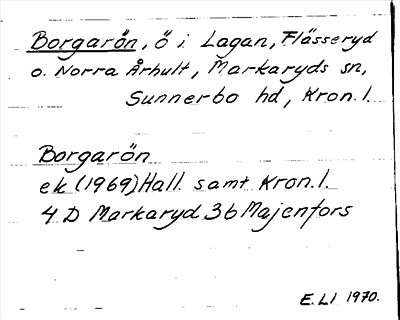 Borgarön, ö i Lagan, Flässeryd
o. Norra Århult, Markaryds sn,
Sunnerbo hd, Kron. l.
Borgarön
ek (1969) Hall. samt Kron. l.
4 D Markaryd 3b Majenfors
E. LI 1970.